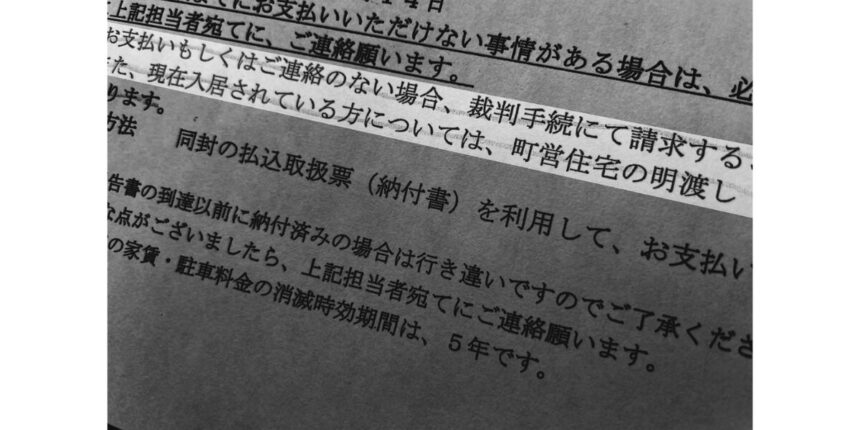 １４日
までにお支払いいただけない事情がある場合は、必
上記担当者宛てに、ご連絡願います。
お支払いもしくはご連絡のない場合、裁判手続にて請求する
た、現在入居されている方については、町営住宅の明渡し
ります。
方法　同封の払込取扱票（納付書）を利用して、お支払い
告書の到達以前に納付済みの場合は行き違いですのでご了承くださ
な点がございましたら、上記担当者宛てにご連絡願います。
の家賃・駐車料金の消滅時効期間は、５年です。